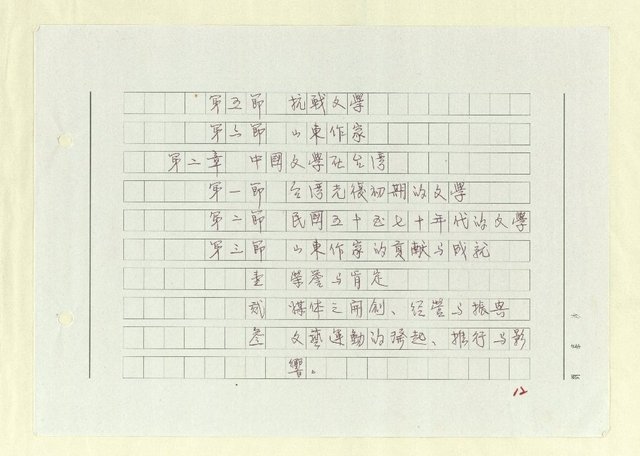 第五節 抗戰文學
第六節 山東作家
第二章 中國文學在台灣
第一節 台灣光復初期的文學
第二節 民國五十至七十年代的文學
第三節 山東作家的貢献与成就
壹 榮譽与肯定
貳 媒体之開創、經營与振興
叁 文藝運動的掀起、推行与影
響。
12